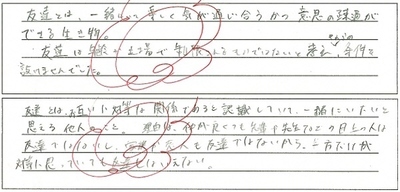 友達とは、一緒にいて楽しく気が通じ合うかつ意思の疎通が
できる生き物。
友達は年齢や立場で制限されていないと考え、条件を
設けませんでした。
友達とは、お互いに対等な関係であると認識していて、一緒にいたいと
思える他人のこと。理由は、仲が良くても先輩や先生などの目上の人は
友達ではないし、恋人も友達ではないから。一方だけが
対等に思っていても友達とはいえない。